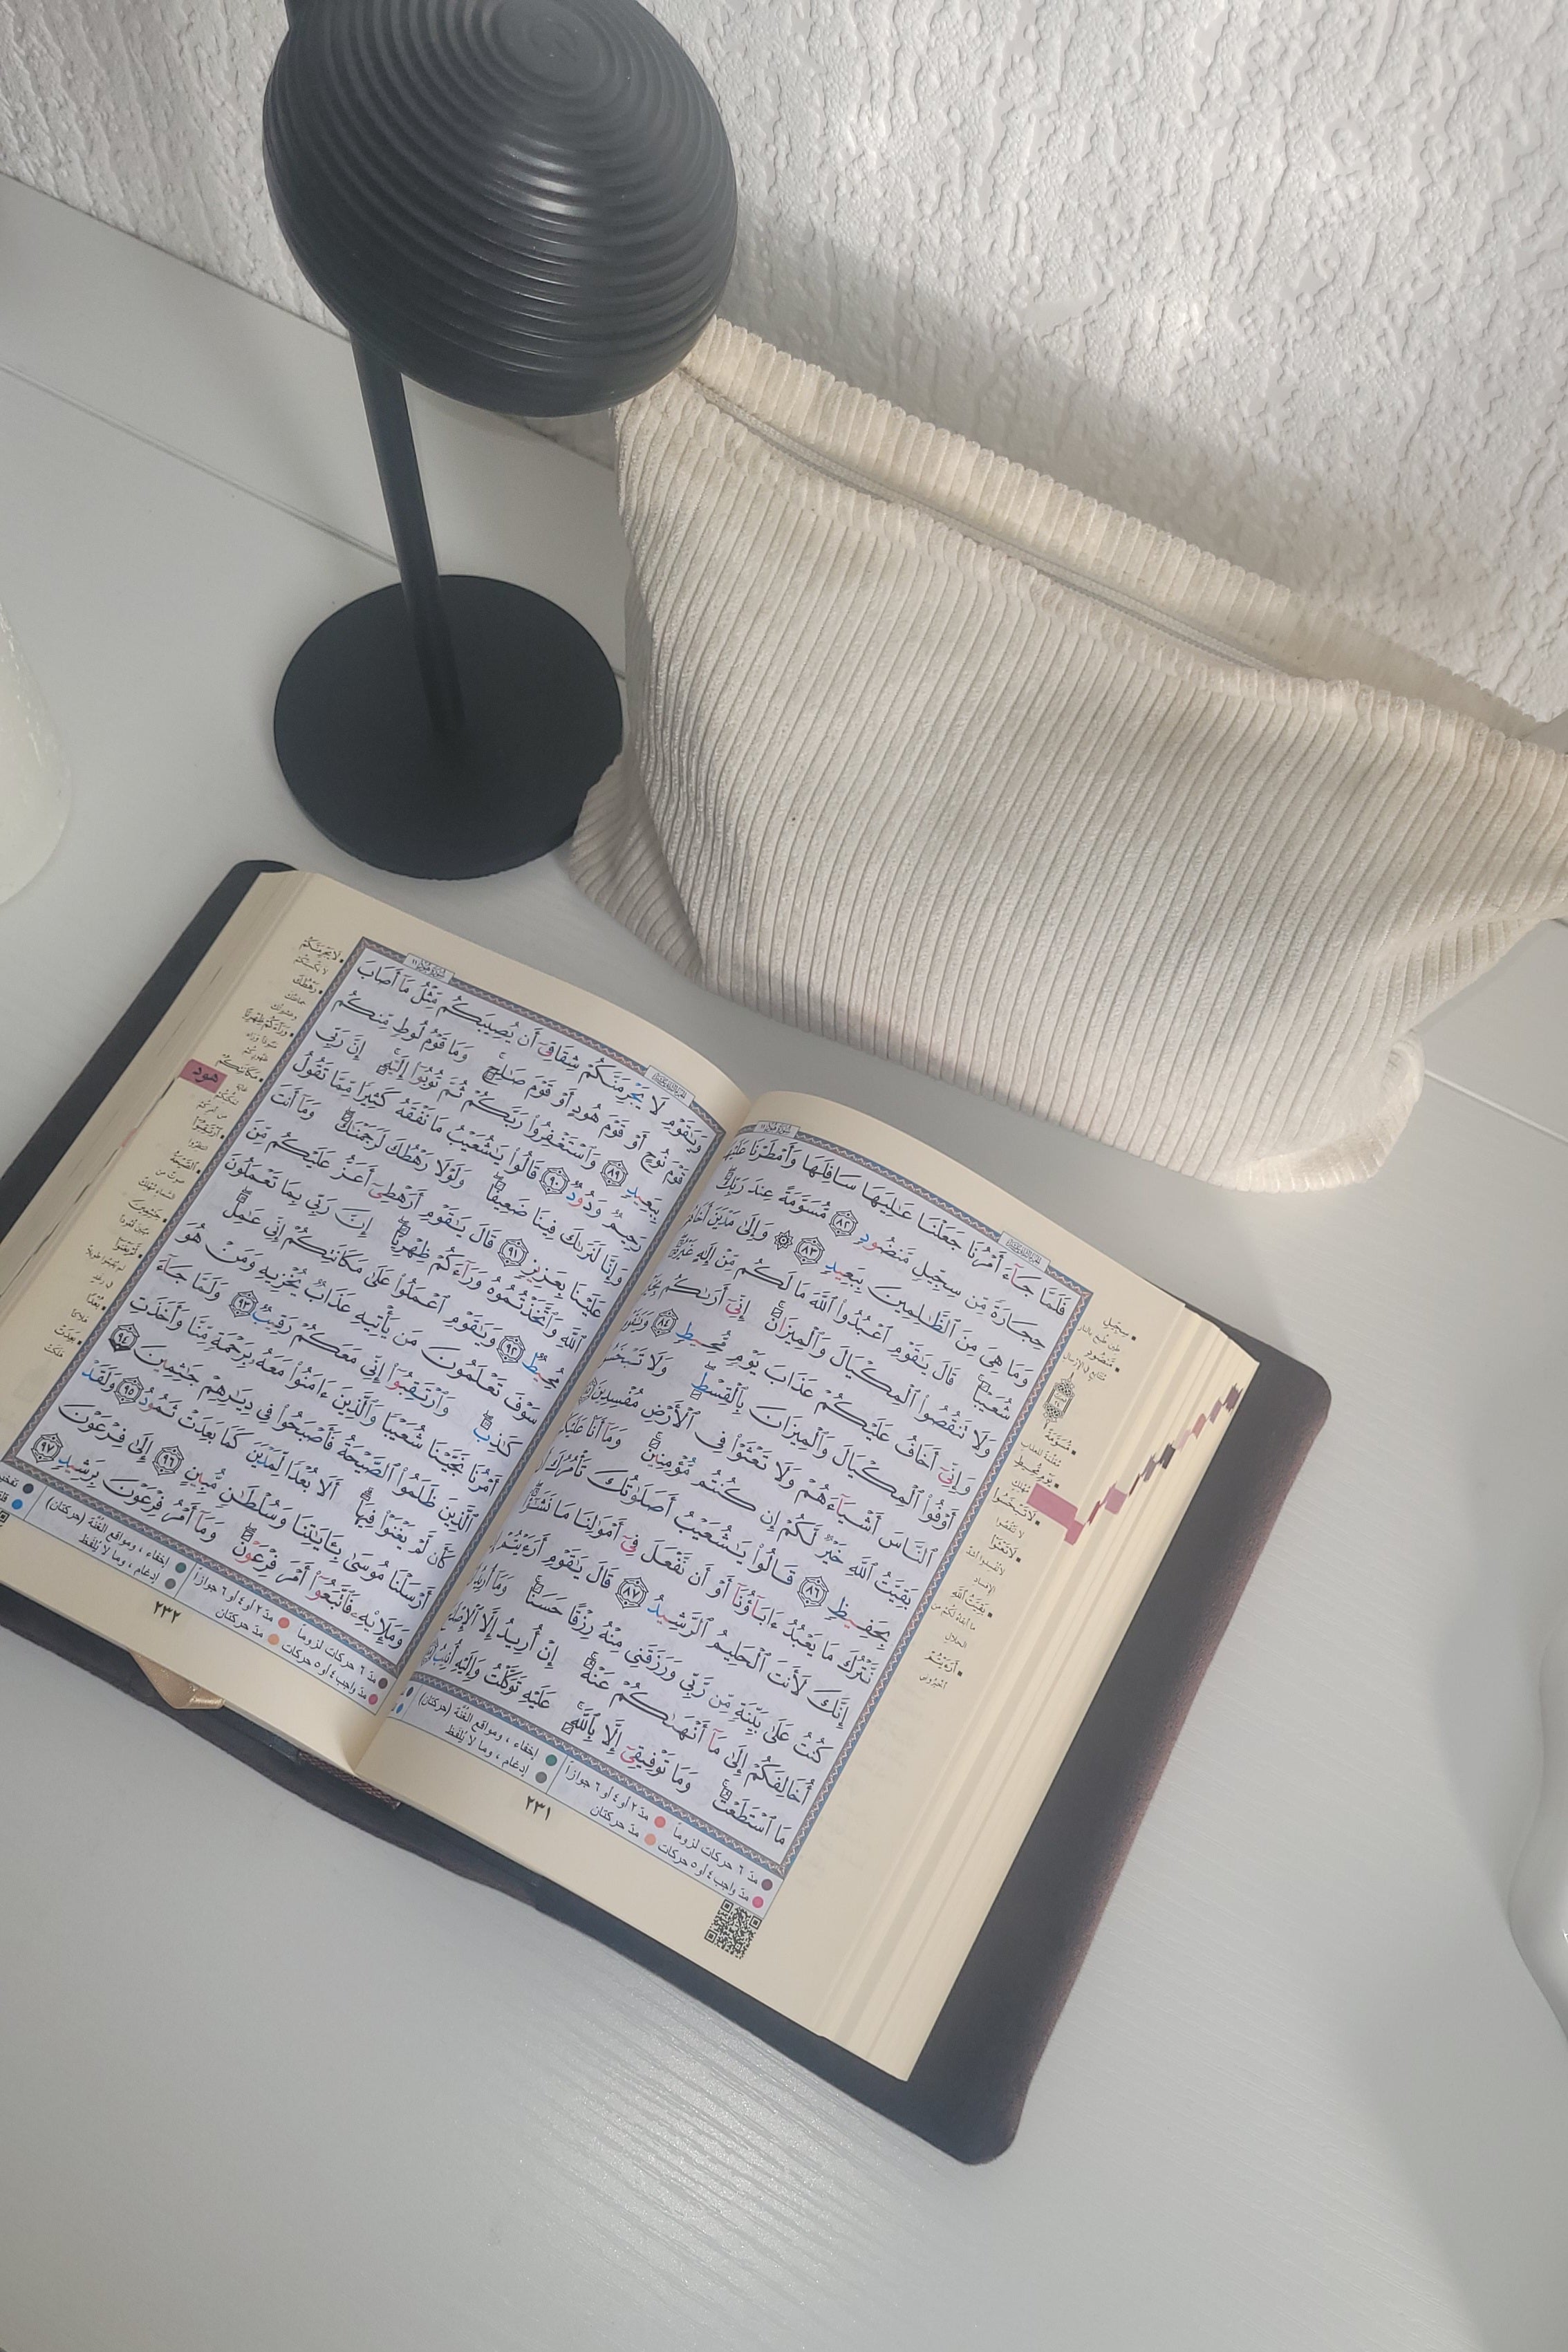 فَلَمَّا جَآءَ أَمْرُنَا جَعَلْنَا عَٰلِيَهَا سَافِلَهَا وَأَمْطَرْنَا عَلَيْهَا
حِجَارَةً مِّن سِجِّيلٍ مَّنضُودٍ ٨٢ مُّسَوَّمَةً عِندَ رَبِّكَ
وَمَا هِىَ مِنَ ٱلظَّٰلِمِينَ بِبَعِيدٍ ٨٣ ۞ وَإِلَىٰ مَدْيَنَ أَخَاهُمْ
شُعَيْبًا ۚ قَالَ يَٰقَوْمِ ٱعْبُدُوا۟ ٱللَّهَ مَا لَكُم مِّنْ إِلَٰهٍ غَيْرُهُۥ
وَلَا تَنقُصُوا۟ ٱلْمِكْيَالَ وَٱلْمِيزَانَ ۚ إِنِّىٓ أَرَىٰكُم
وَإِنِّىٓ أَخَافُ عَلَيْكُمْ عَذَابَ يَوْمٍ مُّحِيطٍ ٨٤ وَيَٰقَوْمِ
أَوْفُوا۟ ٱلْمِكْيَالَ وَٱلْمِيزَانَ بِٱلْقِسْطِ ۖ وَلَا تَبْخَسُوا۟
ٱلنَّاسَ أَشْيَآءَهُمْ وَلَا تَعْثَوْا۟ فِى ٱلْأَرْضِ مُفْسِدِينَ
بَقِيَّتُ ٱللَّهِ خَيْرٌ لَّكُمْ إِن كُنتُم مُّؤْمِنِينَ ۚ وَمَآ أَنَا۠ عَلَيْكُم
بِحَفِيظٍ ٨٦ قَالُوا۟ يَٰشُعَيْبُ أَصَلَوٰتُكَ تَأْمُرُكَ أَن
نَّتْرُكَ مَا يَعْبُدُ ءَابَآؤُنَآ أَوْ أَن نَّفْعَلَ فِىٓ أَمْوَٰلِنَا مَا نَشَٰٓؤُا۟
إِنَّكَ لَأَنتَ ٱلْحَلِيمُ ٱلرَّشِيدُ ٨٧ قَالَ يَٰقَوْمِ أَرَءَيْتُمْ
كُنتُ عَلَىٰ بَيِّنَةٍ مِّن رَّبِّى وَرَزَقَنِى مِنْهُ رِزْقًا حَسَنًا ۚ وَمَآ أُرِيدُ
أُخَالِفَكُمْ إِلَىٰ مَآ أَنْهَىٰكُمْ عَنْهُ ۚ إِنْ أُرِيدُ إِلَّا ٱلْإِصْلَٰحَ
مَا ٱسْتَطَعْتُ ۚ وَمَا تَوْفِيقِىٓ إِلَّا بِٱللَّهِ ۚ عَلَيْهِ تَوَكَّلْتُ وَإِلَيْهِ أُنِيبُ
مدّ ٦ حركات لزوماً مدّ ٢ أو ٤ أو ٦ جوازاً إخفاء ، ومواقع الغُنَّة (حركتان)
مدّ واجب ٤ أو ٥ حركات مدّ حركتان إدغام ، وما لا يُلفَظ
٢٣١
وَيَٰقَوْمِ لَا يَجْرِمَنَّكُمْ شِقَاقِىٓ أَن يُصِيبَكُم مِّثْلُ مَآ أَصَابَ
قَوْمَ نُوحٍ أَوْ قَوْمَ هُودٍ أَوْ قَوْمَ صَٰلِحٍ ۚ وَمَا قَوْمُ لُوطٍ مِّنكُم
بِبَعِيدٍ ٨٩ وَٱسْتَغْفِرُوا۟ رَبَّكُمْ ثُمَّ تُوبُوٓا۟ إِلَيْهِ ۚ إِنَّ رَبِّى
رَحِيمٌ وَدُودٌ ٩٠ قَالُوا۟ يَٰشُعَيْبُ مَا نَفْقَهُ كَثِيرًا مِّمَّا تَقُولُ
وَإِنَّا لَنَرَىٰكَ فِينَا ضَعِيفًا ۖ وَلَوْلَا رَهْطُكَ لَرَجَمْنَٰكَ ۖ وَمَآ أَنتَ
عَلَيْنَا بِعَزِيزٍ ٩١ قَالَ يَٰقَوْمِ أَرَهْطِىٓ أَعَزُّ عَلَيْكُم مِّنَ
ٱللَّهِ وَٱتَّخَذْتُمُوهُ وَرَآءَكُمْ ظِهْرِيًّا ۖ إِنَّ رَبِّى بِمَا تَعْمَلُونَ
مُحِيطٌ ٩٢ وَيَٰقَوْمِ ٱعْمَلُوا۟ عَلَىٰ مَكَانَتِكُمْ إِنِّى عَٰمِلٌ ۖ
سَوْفَ تَعْلَمُونَ مَن يَأْتِيهِ عَذَابٌ يُخْزِيهِ وَمَنْ هُوَ
كَٰذِبٌ ۖ وَٱرْتَقِبُوٓا۟ إِنِّى مَعَكُمْ رَقِيبٌ ٩٣ وَلَمَّا جَآءَ
أَمْرُنَا نَجَّيْنَا شُعَيْبًا وَٱلَّذِينَ ءَامَنُوا۟ مَعَهُۥ بِرَحْمَةٍ مِّنَّا وَأَخَذَتِ
ٱلَّذِينَ ظَلَمُوا۟ ٱلصَّيْحَةُ فَأَصْبَحُوا۟ فِى دِيَٰرِهِمْ جَٰثِمِينَ ٩٤
كَأَن لَّمْ يَغْنَوْا۟ فِيهَآ ۗ أَلَا بُعْدًا لِّمَدْيَنَ كَمَا بَعِدَتْ ثَمُودُ ٩٥ وَلَقَدْ
أَرْسَلْنَا مُوسَىٰ بِـَٔايَٰتِنَا وَسُلْطَٰنٍ مُّبِينٍ ٩٦ إِلَىٰ فِرْعَوْنَ
وَمَلَإِي۟هِۦ فَٱتَّبَعُوٓا۟ أَمْرَ فِرْعَوْنَ ۖ وَمَآ أَمْرُ فِرْعَوْنَ بِرَشِيدٍ ٩٧
مدّ ٦ حركات لزوماً مدّ ٢ أو ٤ أو ٦ جوازاً إخفاء ، ومواقع الغُنَّة (حركتان)
مدّ واجب ٤ أو ٥ حركات مدّ حركتان إدغام ، وما لا يُلفَظ
٢٣٢
هود